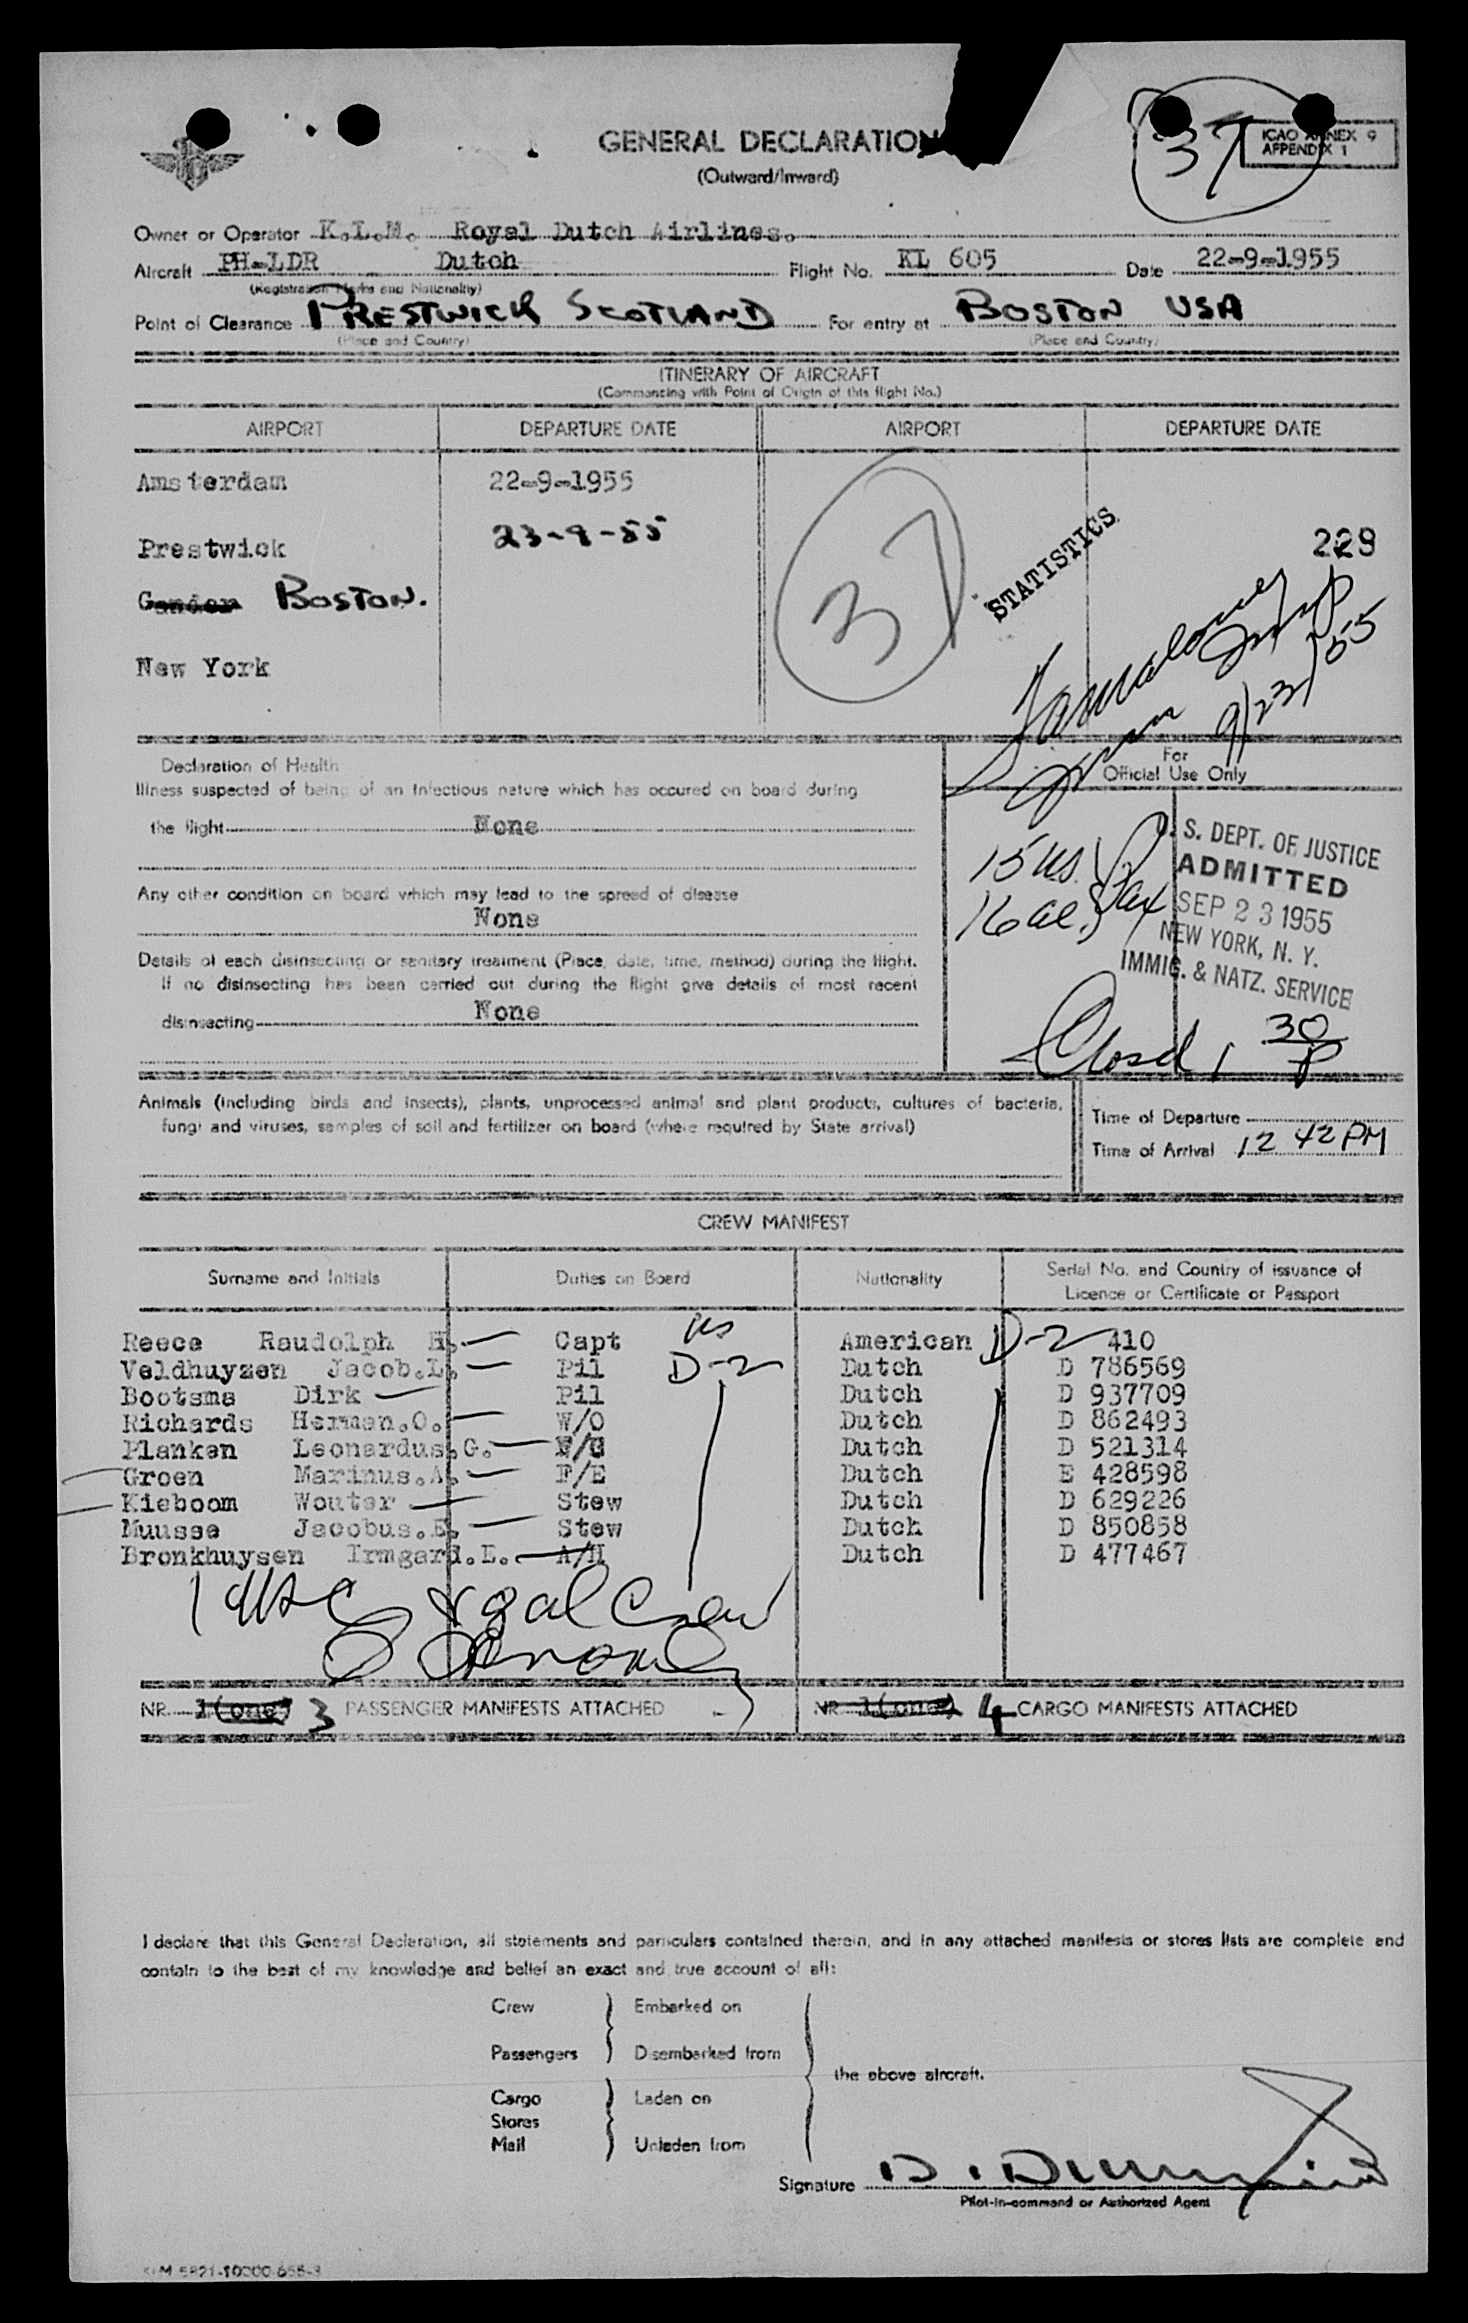 GENERAL DECLARATION
(Outward/Inward)
37
ICAO ANNEX 9
APPENDIX 1
Owner or Operator K.L.M. Royal Dutch Airlines.
Aircraft PH-LDR Dutch Flight No. KL 605 Date 22-9-1955
(Registration Marks and Nationality)
Point of Clearance PRESTWICK SCOTLAND For entry at BOSTON USA
(Place and Country) (Place and Country)
ITINERARY OF AIRCRAFT
(Commencing with Point of Origin of this flight No.)
AIRPORT DEPARTURE DATE AIRPORT DEPARTURE DATE
Amsterdam 22-9-1955
Prestwick 23-9-55
Gander BOSTON.
New York
37
STATISTICS
228
9/23/55
Declaration of Health
Illness suspected of being of an infectious nature which has occured on board during
the flight None
Any other condition on board which may lead to the spread of disease
None
Details of each disinsecting or sanitary treatment (Place, date, time, method) during the flight.
If no disinsecting has been carried out during the flight give details of most recent
disinsecting None
For
Official Use Only
15 US
16 al. Pax
U. S. DEPT. OF JUSTICE
ADMITTED
SEP 23 1955
NEW YORK, N. Y.
IMMIG. & NATZ. SERVICE
Closed 1 30/P
Animals (including birds and insects), plants, unprocessed animal and plant products, cultures of bacteria,
fungi and viruses, samples of soil and fertilizer on board (where required by State arrival)
Time of Departure
Time of Arrival 12 42 PM
CREW MANIFEST
Surname and Initials Duties on Board Nationality Serial No. and Country of issuance of
Licence or Certificate or Passport
Reece Raudolph H. Capt US American D-2 410
Veldhuyzen Jacob.L. Pil D-2 Dutch D 786569
Bootsma Dirk Pil Dutch D 937709
Richards Herman.O. W/O Dutch D 862493
Planken Leonardus.G. Dutch D 521314
Groen Marinus.A. F/E Dutch E 428598
Kieboom Wouter Stew Dutch D 629226
Muusse Jacobus.E. Stew Dutch D 850858
Bronkhuysen Irmgard.E. A/H Dutch D 477467
1 USC 8 al Crew
NR. 1(one) 3 PASSENGER MANIFESTS ATTACHED NR. 1(one) 4 CARGO MANIFESTS ATTACHED
I declare that this General Declaration, all statements and particulars contained therein, and in any attached manifests or stores lists are complete and
contain to the best of my knowledge and belief an exact and true account of all:
Crew Embarked on
Passengers Disembarked from
the above aircraft.
Cargo Laden on
Stores
Mail Unladen from
Signature
Pilot-in-command or Authorized Agent